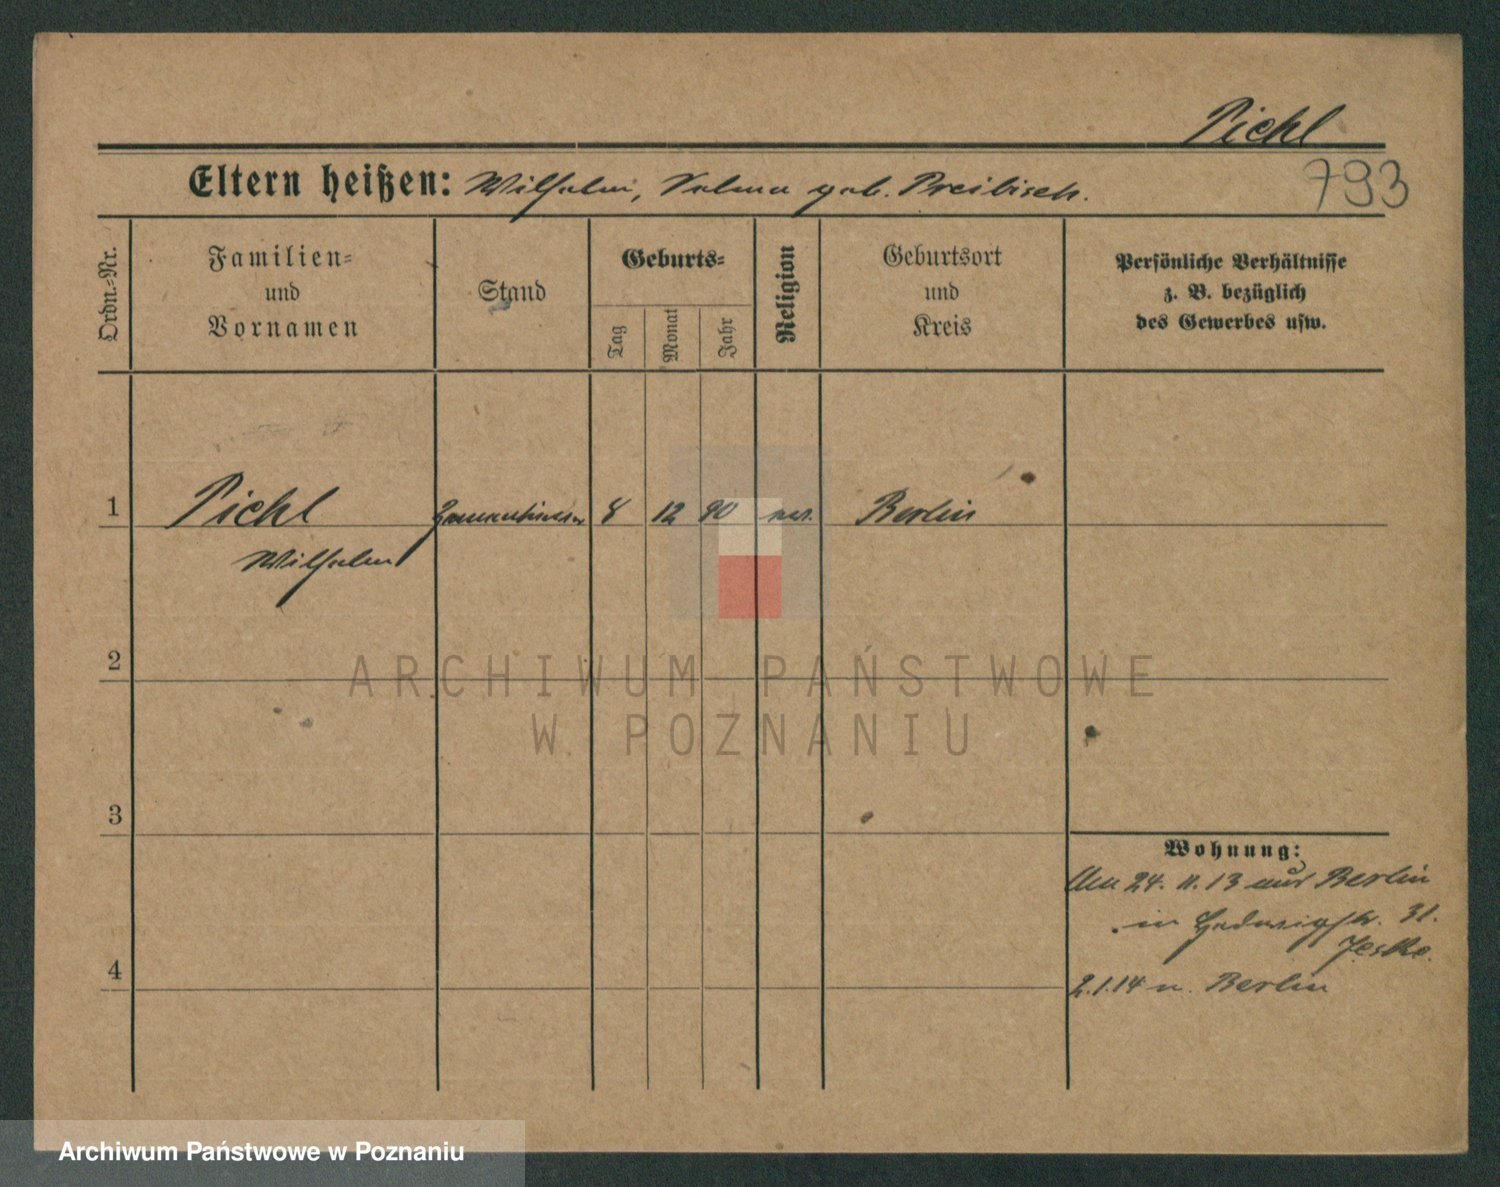 Pichl
Eltern heißen: Wilhelm, geb. Preibisch.
793
Ordn.-Nr.
Familien-
und
Vornamen
Stand
Geburts-
Tag
Monat
Jahr
Religion
Geburtsort
und
Kreis
Persönliche Verhältnisse
z. B. bezüglich
des Gewerbes usw.
1 Pichl 8 12 90 Berlin
Wilhelm
2
3
4
Wohnung:
Am 24. 11. 13 aus Berlin
in Hedwigstr. 31.
Jeske.
2.1.14 n. Berlin
ARCHIWUM PAŃSTWOWE
W POZNANIU
Archiwum Państwowe w Poznaniu